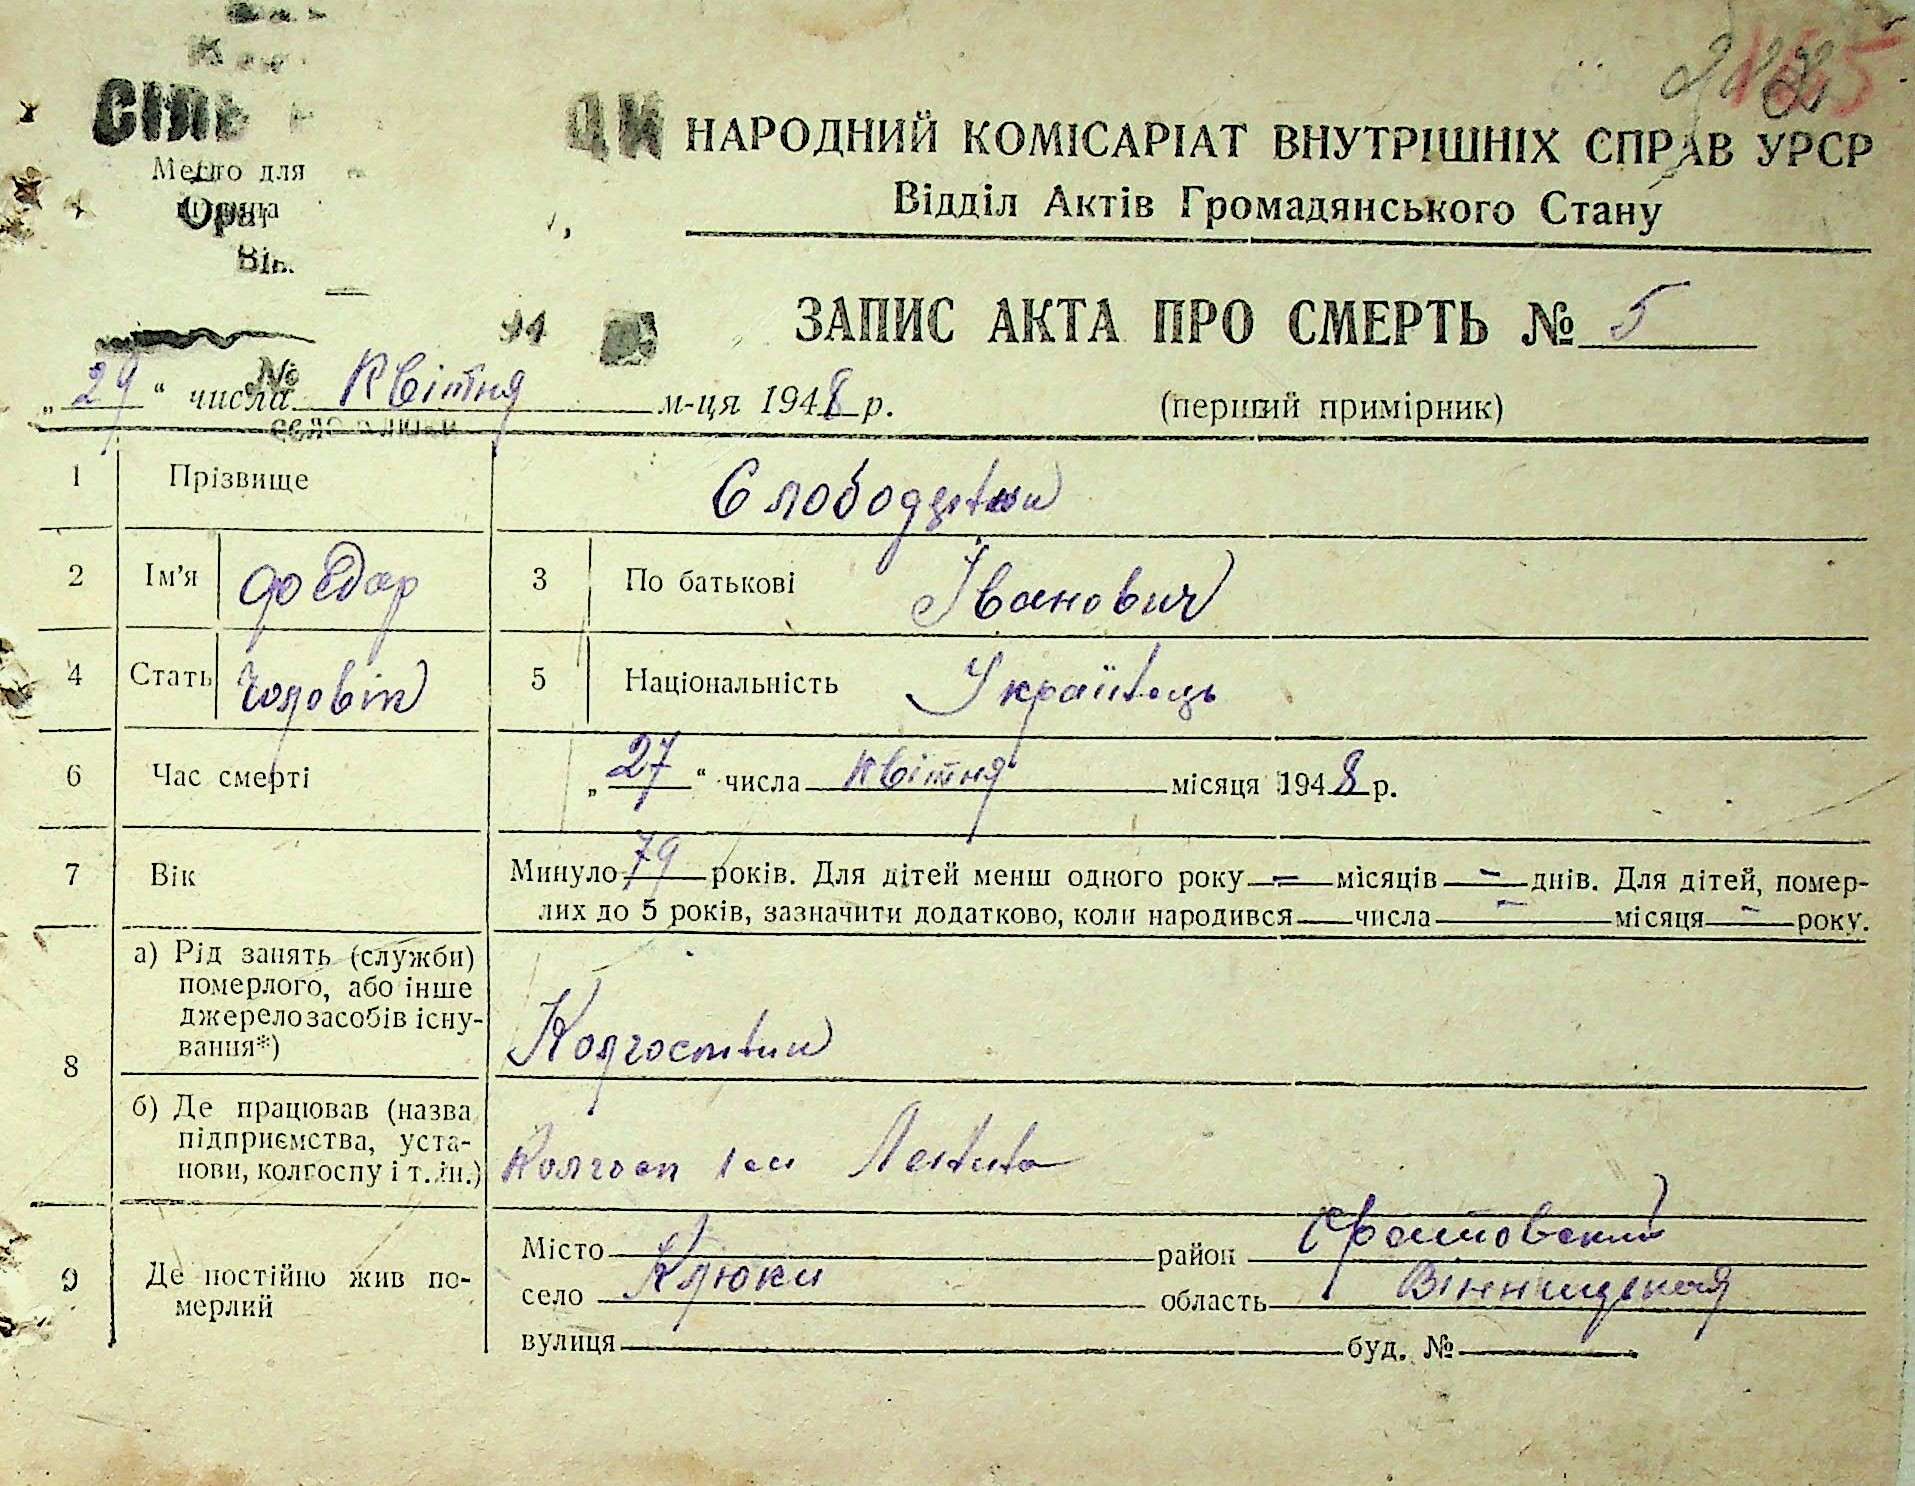 СІЛЬ
НАРОДНИЙ КОМІСАРІАТ ВНУТРІШНІХ СПРАВ УРСР
Место для
Відділ Актів Громадянського Стану
ЗАПИС АКТА ПРО СМЕРТЬ № 5
„29“ числа Квітня м-ця 1948 р. (перший примірник)
1 Прізвище
2 Ім'я Фёдар 3 По батькові Іванович
4 Стать Чоловік 5 Національність Українець
6 Час смерті „27“ числа квітня місяця 1948 р.
7 Вік Минуло 79 років. Для дітей менш одного року — місяців — днів. Для дітей, помер-
лих до 5 років, зазначити додатково, коли народився — числа — місяця — року.
8 а) Рід занять (служби)
померлого, або інше
джерело засобів існу-
вання*) Колгоспник
б) Де працював (назва
підприємства, уста-
нови, колгоспу і т. ін.) Колгосп ім Леніна
9 Де постійно жив по-
мерлий
Місто район
село Клюки область Вінницькая
вулиця буд. №